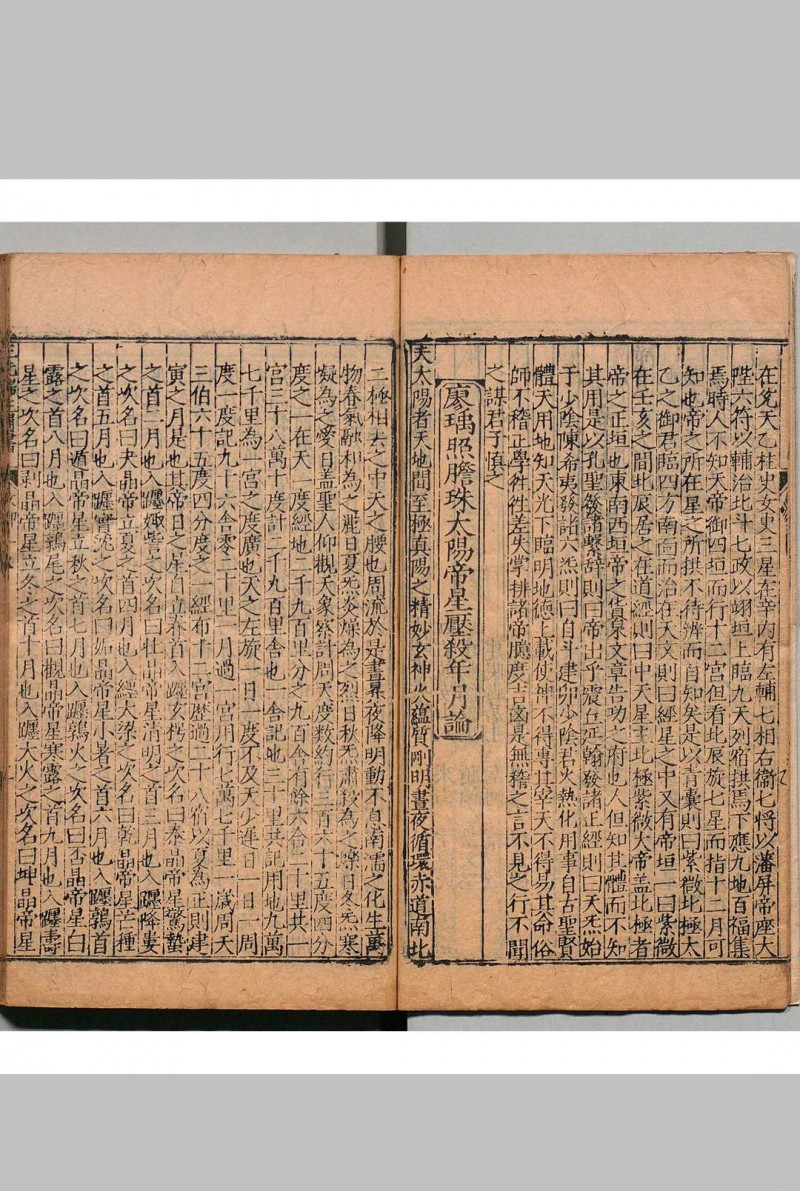 在兊天乙柱史女史三星在辛内有左輔七相右衞七將以藩屏帝座大
陛六符以輔治北斗七政以翊垣上臨九天列宿拱焉下應九地百福集
焉時人不知天帝御四垣而行十二宮但看北辰旋七星而指十二月可
知也帝之所在星之所拱不待辨而自知矣是以青囊則曰紫微北極太
乙之御君臨四方南面而治在天文則曰經星之中又有帝垣一曰紫微
在壬亥之間北辰居之在道經則曰中天星主北極紫微大帝盖北極者
帝之正垣也東南西垣帝之貴泉文章告功之府也人但知其體而不知
其用是以孔聖發諸繫辭則曰帝出乎震丘延翰發諸正經則曰天炁始
于少陰陳希夷發諸六炁則曰自斗建卯少陰君火熱化用事自古聖賢
體天用地知天光下臨明地德上載使神不得專其宰天不得易其命俗
師不稽正學徃徃差失掌排諸帝臆度吉凶是無稽之言不見之行不聞
之謀君子慎之
廖瑀照膽珠太陽帝星壓殺年月論
夫太陽者天地間至極真陽之精妙玄神火蘊質剛明晝夜循環赤道南北
二極相去之中天之腰也周流於是晝昇夜降明動不息南濡之化生萬
物春氣融和為之麗日夏炁炎燥為之烈日秋炁肅殺為之爍日冬炁寒
凝為之愛日盖聖人仰觀天象察計周天度數約行三百六十五度四分
度之一在天一度經地二千九百里分之九百舍有餘六舍二十里共一
宮三十八萬十度計二千九百里舍也一舍記地三十里共記用地九萬
七千里為一宮之度廣也天之左旋一日一度不及天少遲日一日一周
度一度記九十六舍零二十里一月過一宮用行七萬七千里一歲周天
三伯六十五度四分度之一經布十二宮歷過二十八宿以夏為正則建
寅之月是也其帝日之星自立春首入躔玄枵之次名曰泰晶帝星驚蟄
之首二月也入躔娵訾之次名曰壯晶帝星清明之首三月也入躔降婁
之次名曰夬晶帝星立夏之首四月也入纏大梁之次名曰乾晶帝星芒種
之首五月也入躔實沈之次名曰姤晶帝星小暑之首六月也入躔鶉首
之次名曰遁晶帝星立秋之首七月也入躔鶉火之次名曰否晶帝星白
露之首八月也入躔鶉尾之次名曰觀晶帝星寒露之首九月也入躔壽
星之次名曰剥晶帝星立冬之首十月也入躔大火之次名曰坤晶帝星